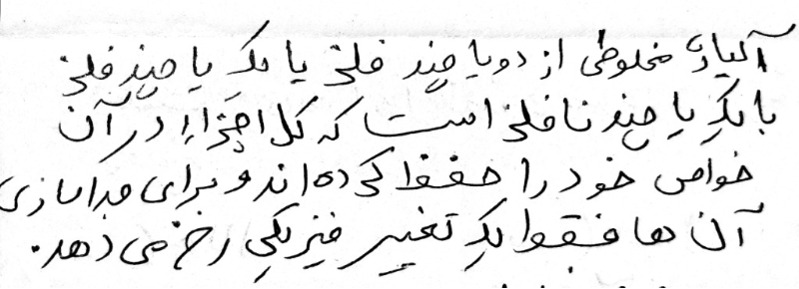 آلیاژ مخلوطی از دو یا چند فلز یا یک یا چند فلز
با یک یا چند نافلز است که کل اجزاء در آن
خواص خود را حفظ کرده اند و برای جداسازی
آن ها فقط یک تغییر فیزیکی رخ می دهد.